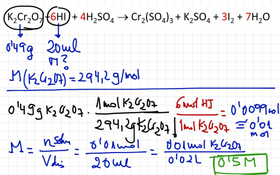 K₂Cr₂O₇ + 6HI + 4H₂SO₄ → Cr₂(SO₄)₃ + K₂SO₄ + 3I₂ + 7H₂O
0'49g 20ml
M?
M(K₂Cr₂O₇) = 294,2g/mol
0'49g K₂Cr₂O₇ · 1mol K₂Cr₂O₇ / 294,2g K₂Cr₂O₇ · 6mol HI / 1mol K₂Cr₂O₇ = 0'0099mol
≅ 0'01 mol
M = n / V = 0'01mol / 20ml = 0'01mol K₂Cr₂O₇ / 0'02L
0'5M